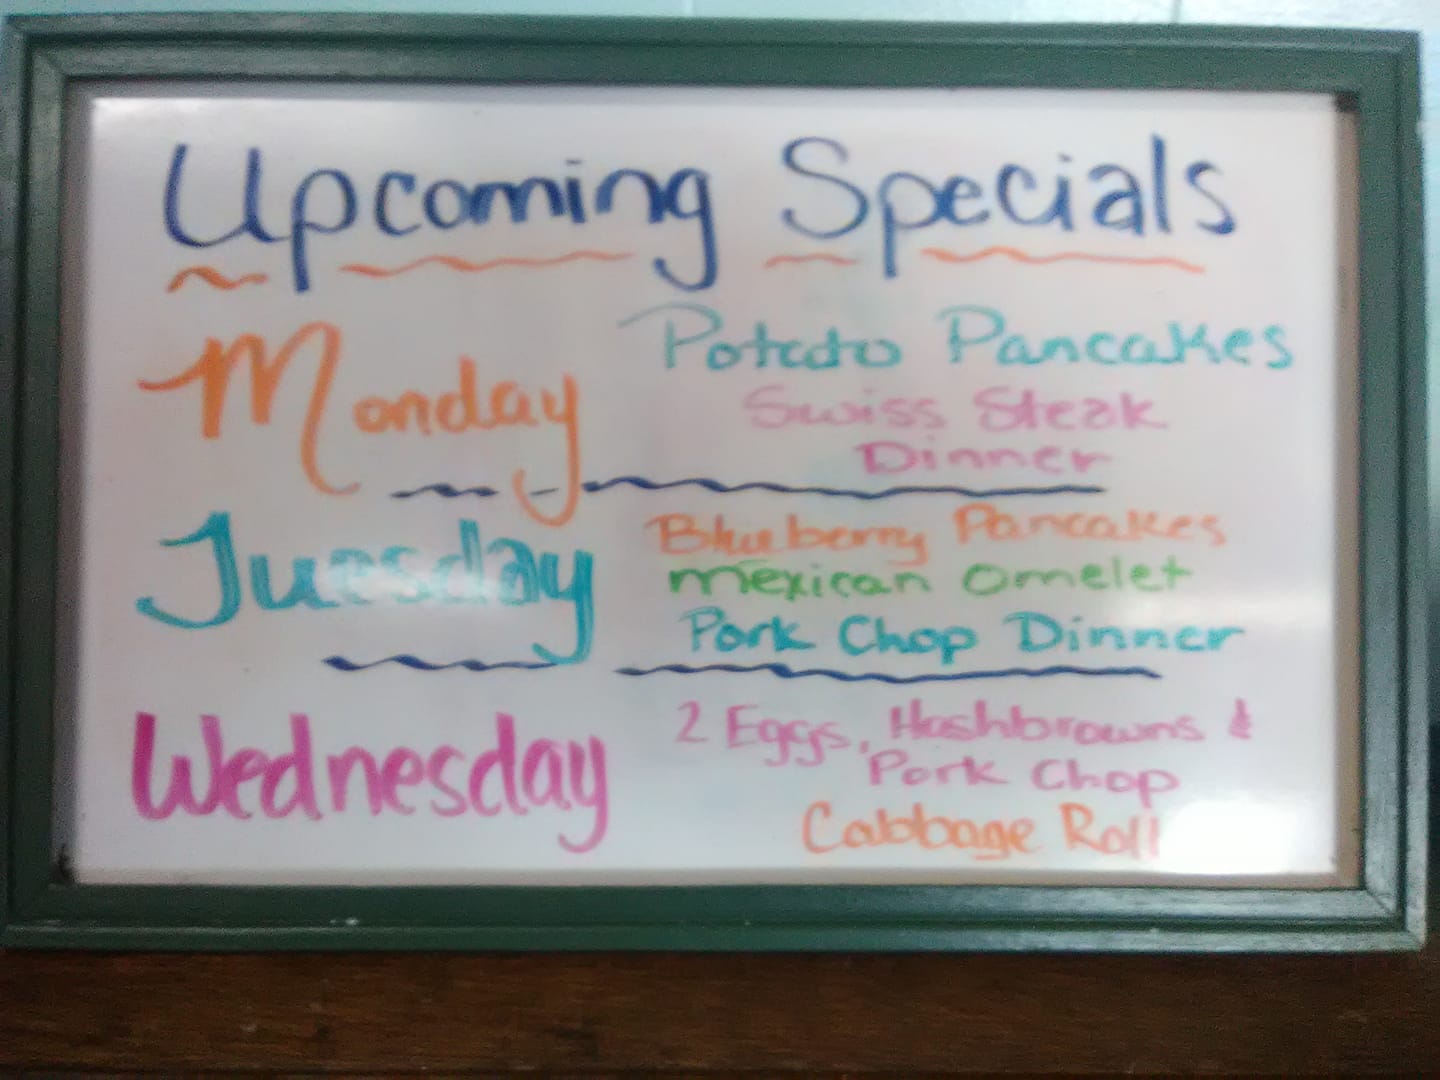 Upcoming Specials
Monday
Potato Pancakes
Swiss Steak
Dinner
Tuesday
Blueberry Pancakes
Mexican Omelet
Pork Chop Dinner
Wednesday
2 Eggs, Hashbrowns &
Pork Chop
Cabbage Roll